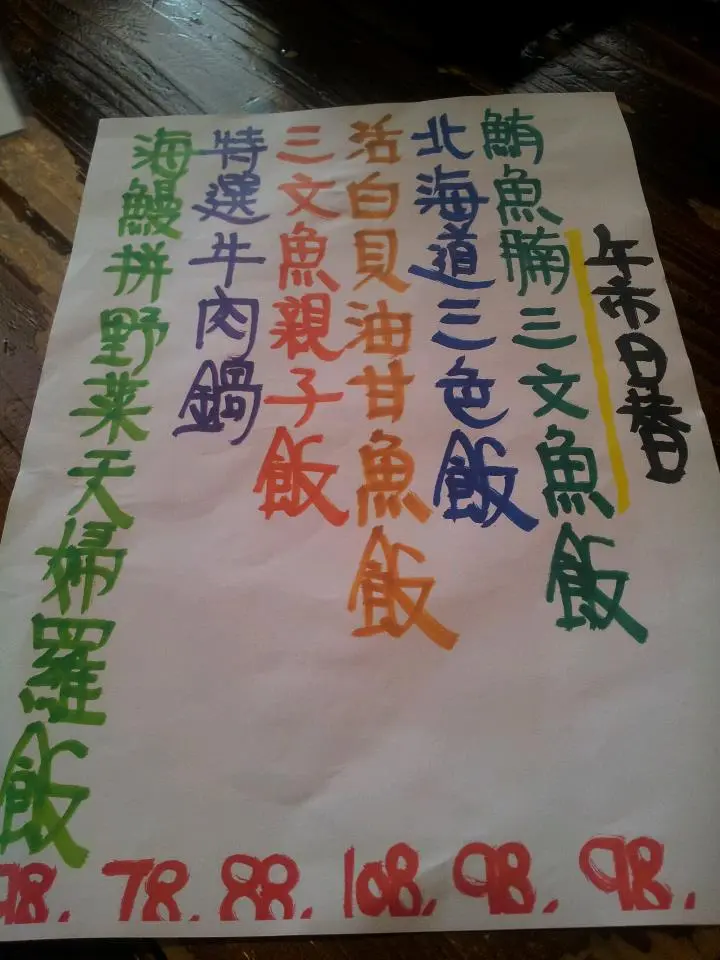 午市日替
鮪魚腩三文魚飯
北海道三色飯
活白貝油甘魚飯
三文魚親子飯
特選牛肉鍋
海鰻拼野菜天婦羅飯
98. 78. 88. 108. 98. 98.